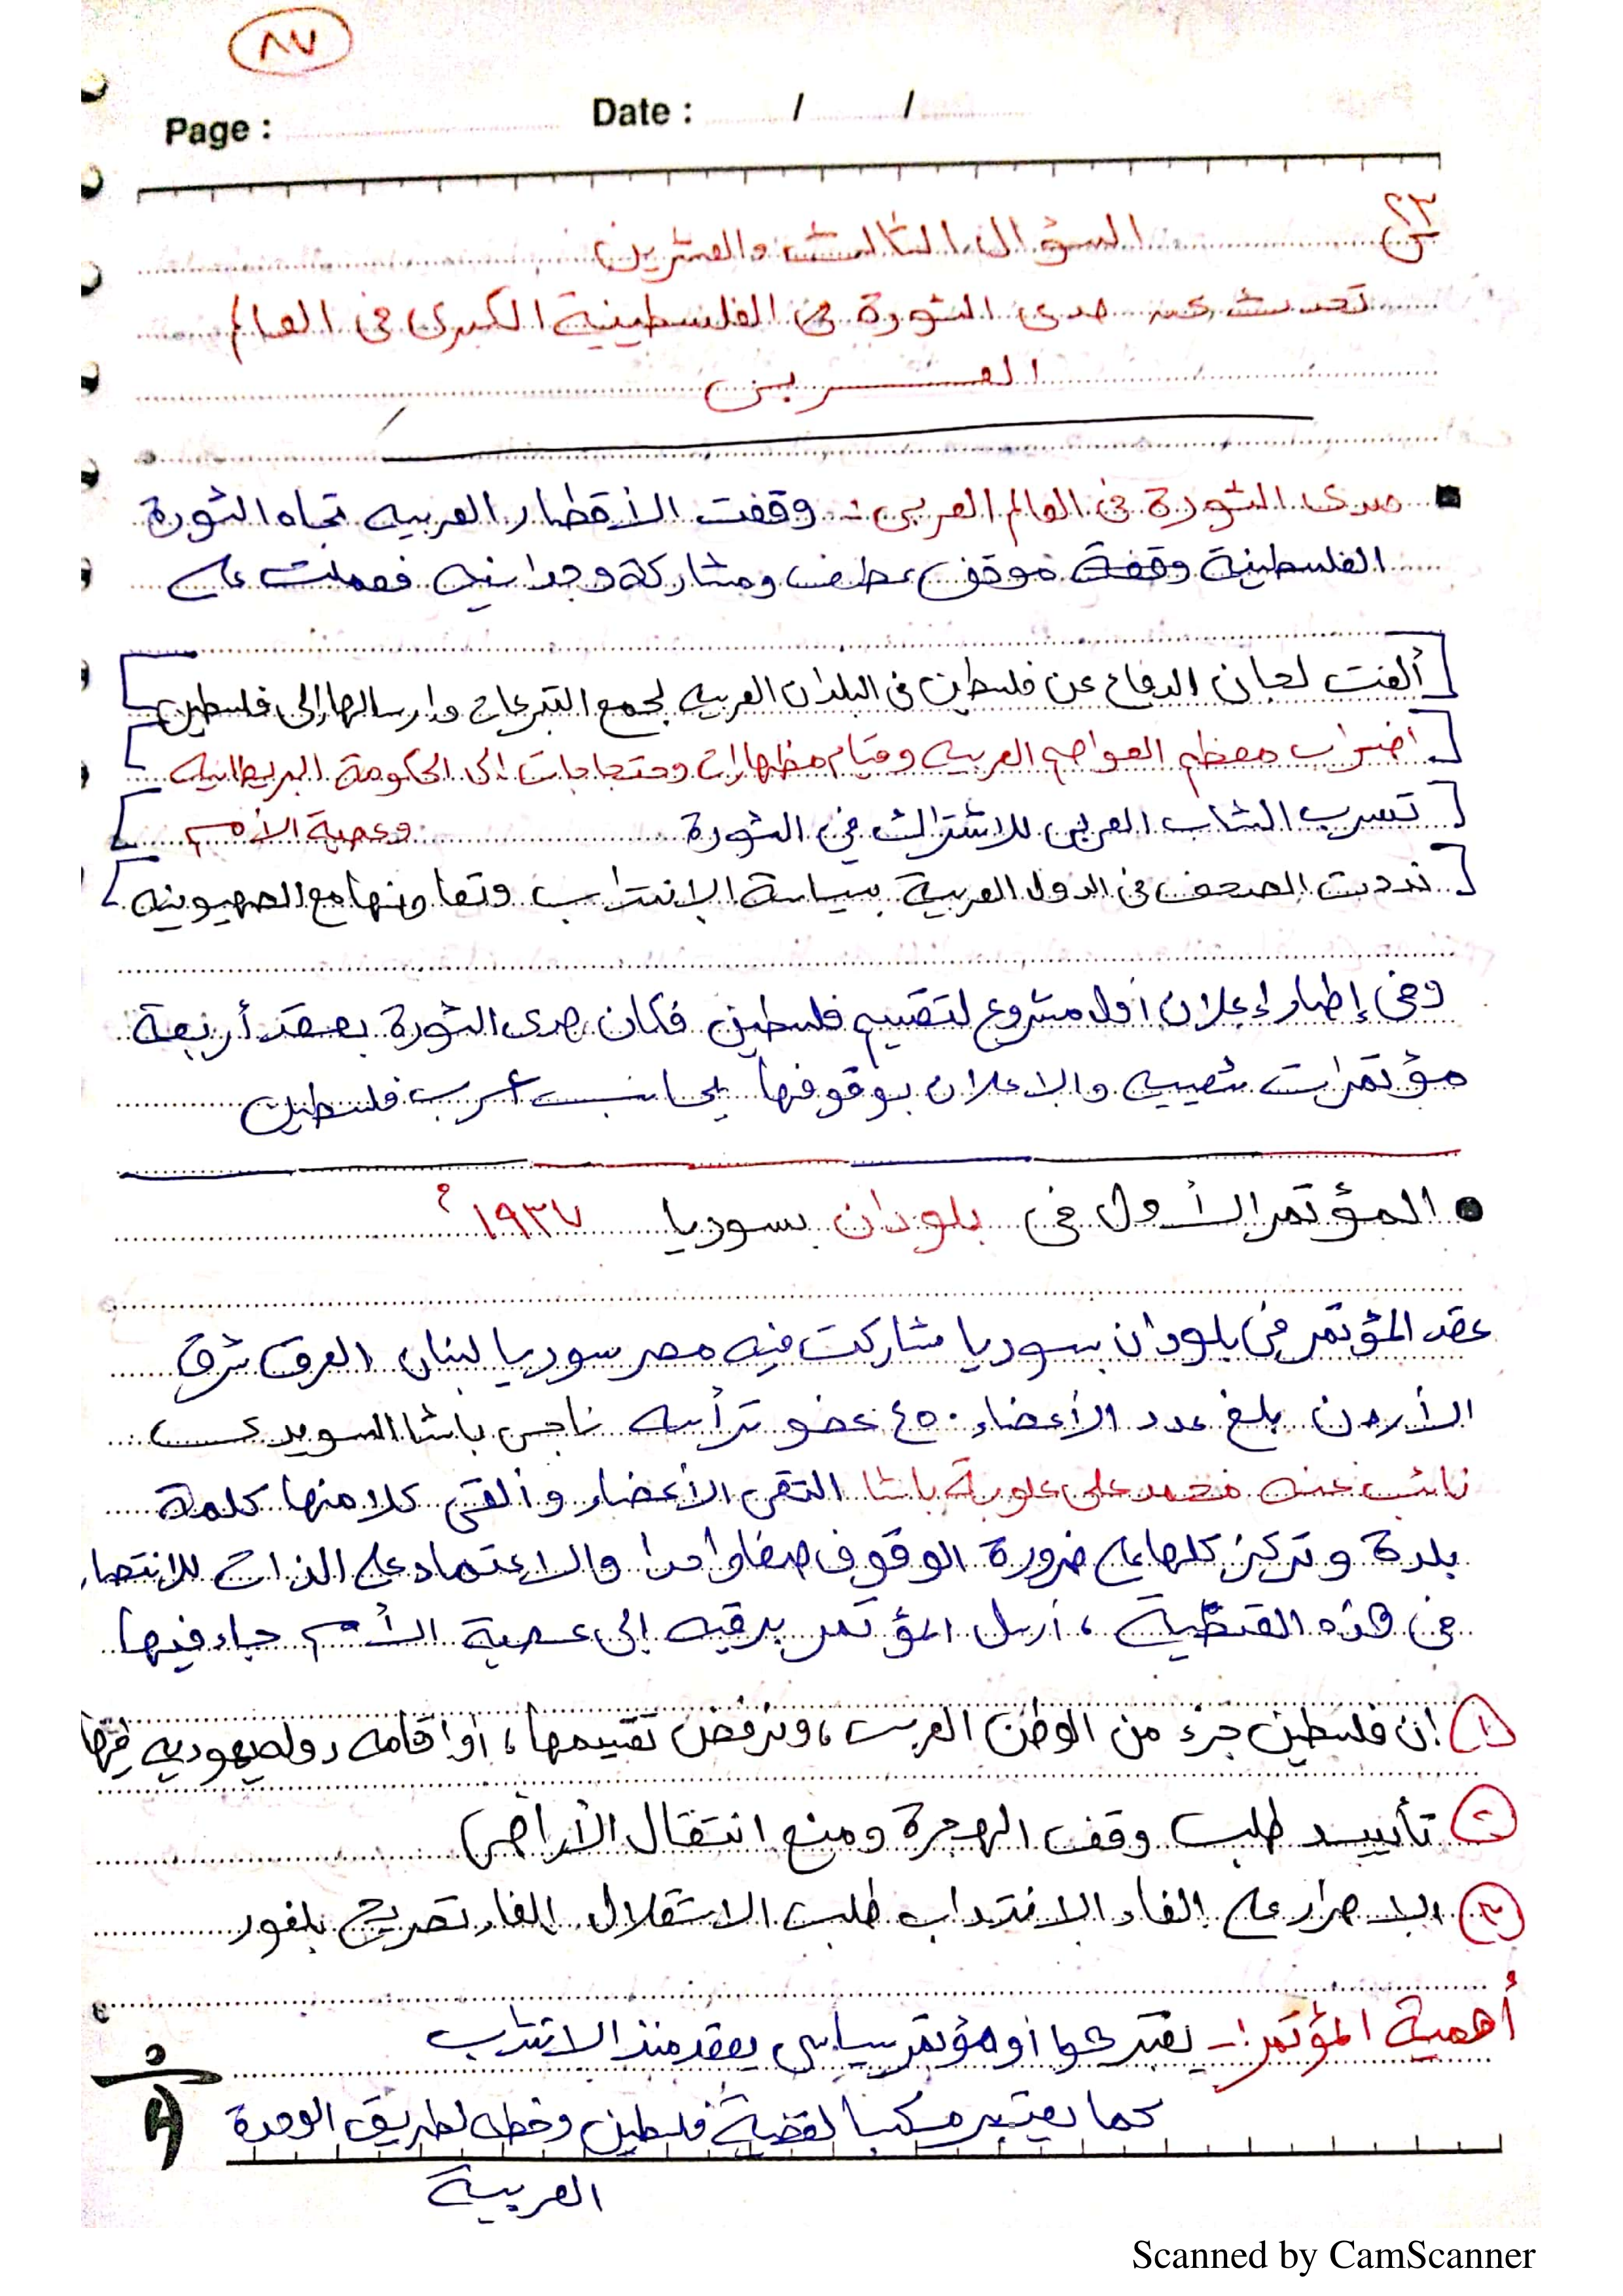 ٨٧
Page : Date : / /
س٢٣ السؤال الثالث والعشرين
تحدث عن صدى الثورة في الفلسطينية الكبرى في العالم
العربي
صدى الثورة في العالم العربي :- وقفت الأقطار العربيه تجاه الثورة
الفلسطينية وقفة موقف عطف ومشاركة وجدانيه فعملت على
[ألفت لجان الدفاع عن فلسطين في البلدان العربيه لجمع التبرعات وارسالها إلى فلسطين]
[اضراب معظم العواصم العربيه وقيام مظهارات وحتجاجات إلى الحكومة البريطانيه
وعصبة الأمم]
[تسرب الشاب العربي للاشتراك في الثورة
[نددت الصحف في الدول العربية بسياسة الإنتداب وتعاونها مع الصهيونيه]
وفي إطار إعلان أول مشروع لتقسيم فلسطين فكان صدى الثورة بعقد أربعة
مؤتمرات شعبيه والاعلان بوقوفها بجانب عرب فلسطين
• المؤتمر الأول في بلودان بسوريا ١٩٣٧م
عقد المؤتمر في بلودان بسوريا شاركت فيه مصر سوريا لبنان العرق شرق
الأردن بلغ عدد الأعضاء ٤٥٠ عضو ترأسه ناجي باشا السويدي
نائب عنه محمد علي علوبة باشا التقى الأعضاء وألقى كلا منها كلمة
بلدة وتركز كلها على ضرورة الوقوف صفا واحدا والاعتماد على الذات للانتصار
في هذه القضية ، أرسل المؤتمر برقيه إلى عصبة الأمم جاء فيها
١ إن فلسطين جزء من الوطن العربي ، ونرفض تقسيمها ، أو اقامه دولة يهوديه فيها
٢ تأييد طلب وقف الهجرة ومنع انتقال الأراضي
٣ الاصرار على الغاء الانتداب طلب الاستقلال الغاء تصريح بلفور
أهمية المؤتمر :- يعتبر أو مؤتمر سياسي يعقد منذ الانتداب
كما يعتبر مكسبا لقضية فلسطين وخطه لطريق الوحدة
العربية
Scanned by CamScanner